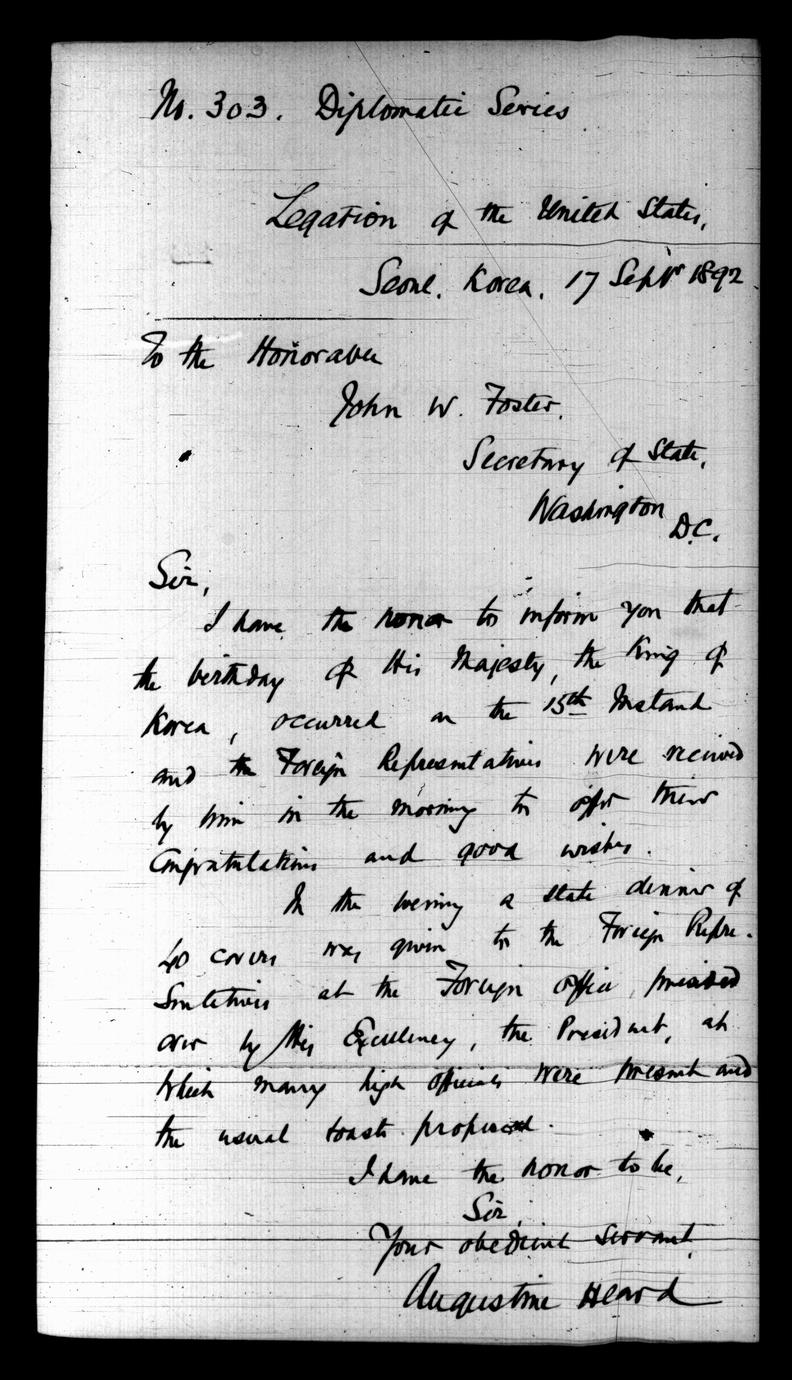 No. 303. Diplomatic Series
Legation of the United States,
Seoul. Korea. 17 Septr 1892
To the Honorable
John W. Foster.
Secretary of State,
Washington
D.C.
Sir,
I have the honor to inform you that
the birthday of His Majesty, the King of
Korea, occurred on the 15th Instant
and the Foreign Representatives were received
by him in the morning to offer their
Congratulations and good wishes.
In the evening a state dinner of
40 covers was given to the Foreign Repre-
sentatives at the Foreign Office presided
over by His Excellency, the President, at
which many high officials were present and
the usual toasts proposed.
I have the honor to be,
Sir,
Your obedient servant,
Augustine Heard